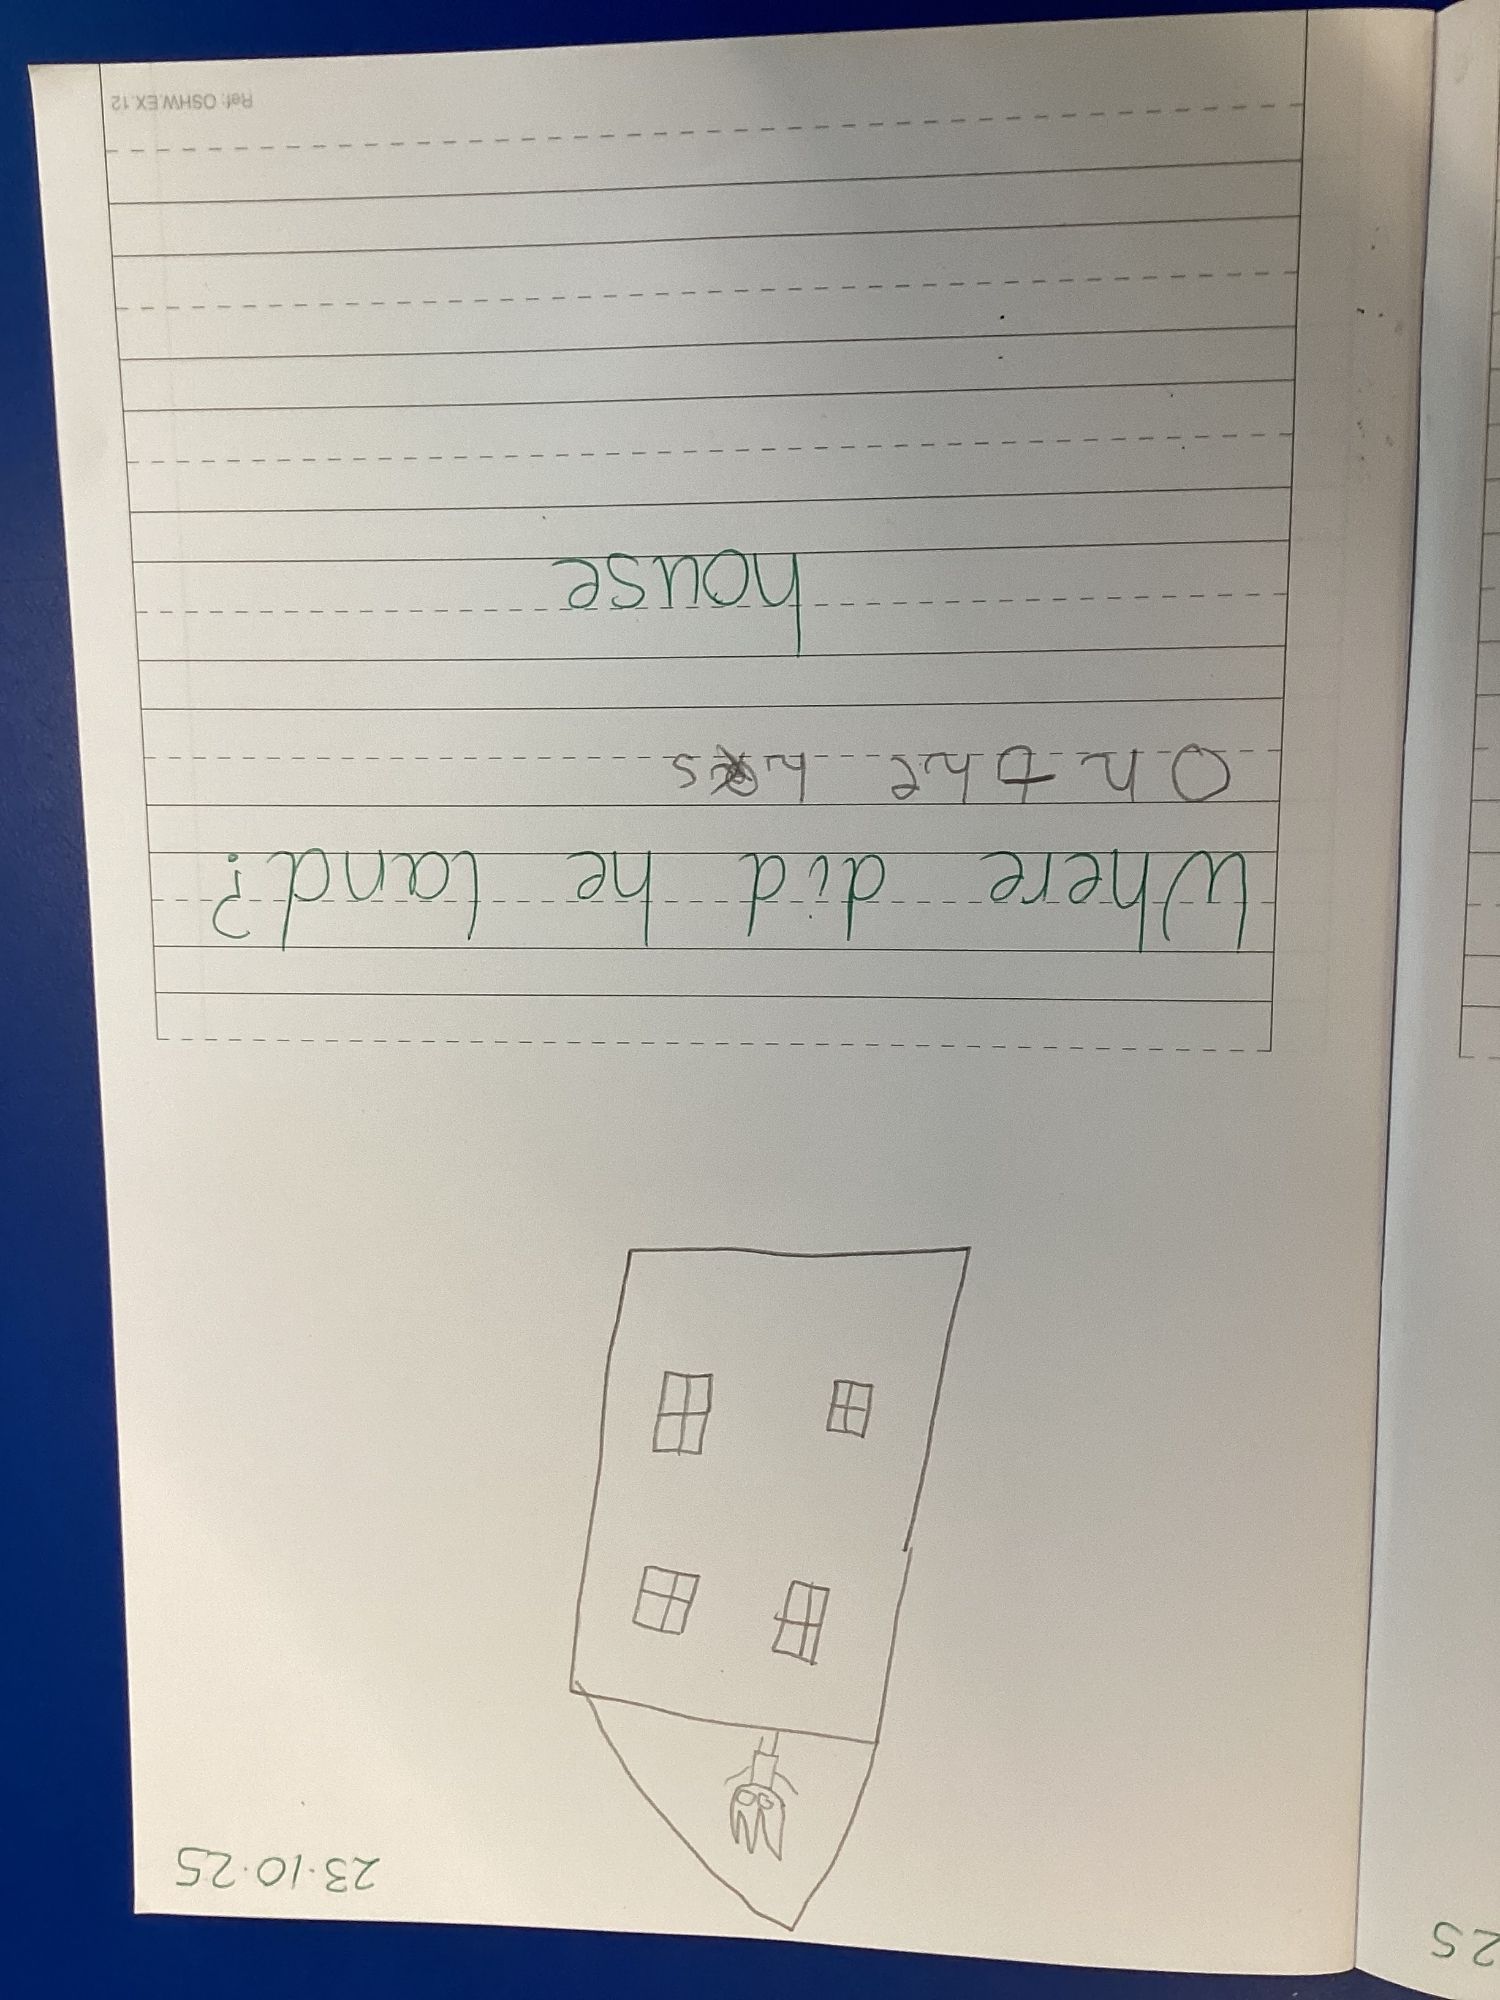 23.10.25
Where did he land?
On the
house
Ref: OSHW.EX.12
25